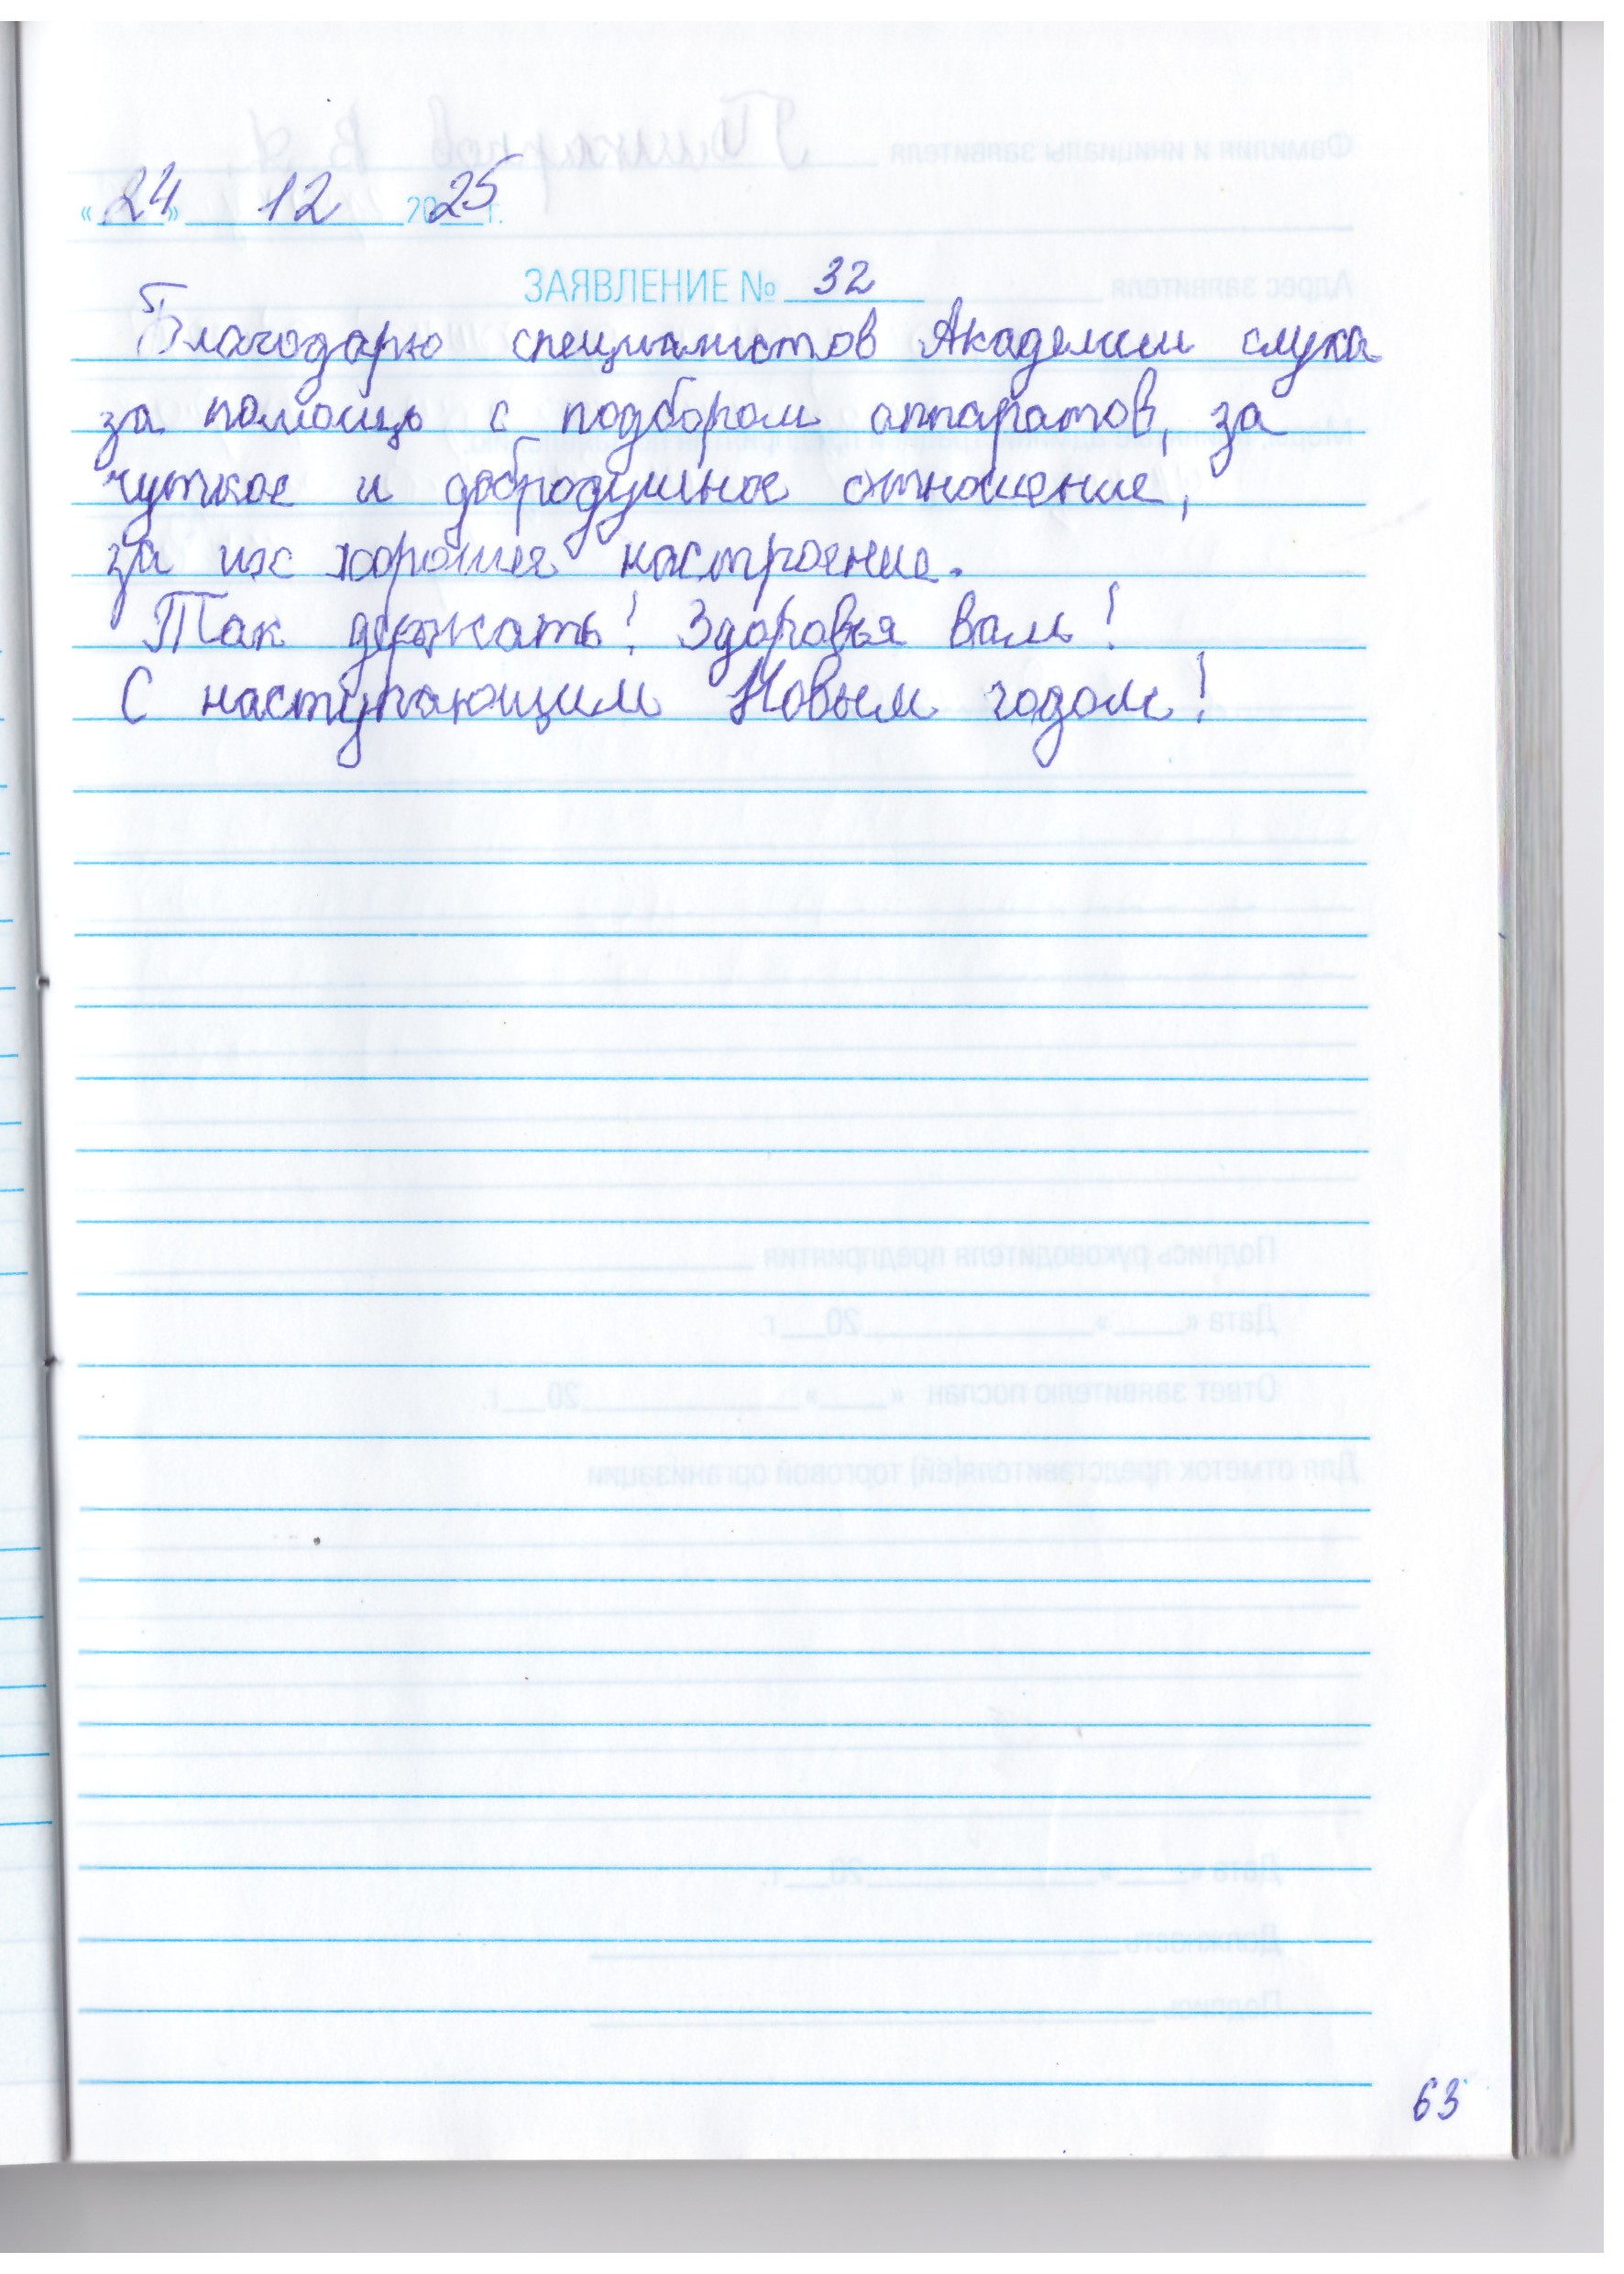 «24» 12 2025 г.
ЗАЯВЛЕНИЕ № 32
Благодарю специалистов Академии слуха
за помощь с подбором аппаратов, за
чуткое и добродушное отношение,
за их хорошее настроение.
Так держать! Здоровья вам!
С наступающим Новым годом!
63